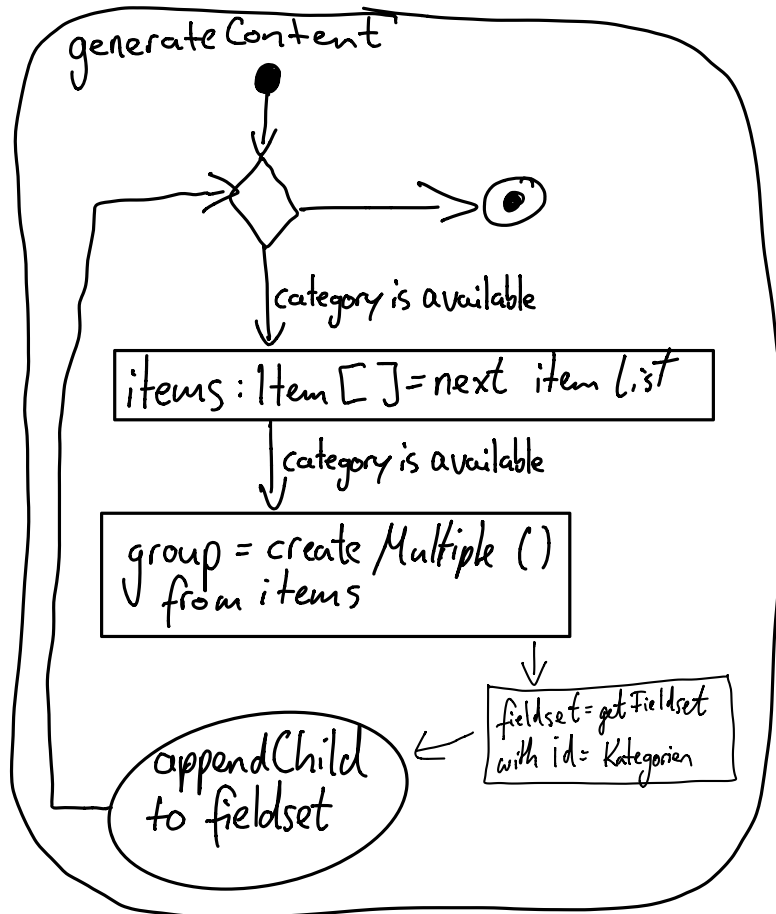 generateContent
category is available
items : Item [ ] = next item list
category is available
group = create Multiple ()
from items
fieldset = get Fieldset
with id = Kategorien
appendChild
to fieldset